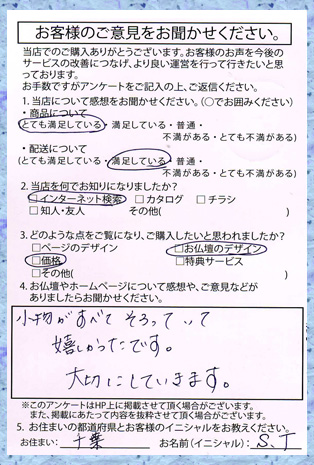 お客様のご意見をお聞かせください。
当店でのご購入ありがとうございます。お客様のお声を今後の
サービスの改善につなげ、より良い運営を行って行きたいと思
っております。
お手数ですがアンケートをご記入の上、ご返信ください。
1. 当店について感想をお聞かせください。(○でお囲みください)
・商品について
(とても満足している・満足している・普通・
不満がある・とても不満がある)
・配送について
(とても満足している・満足している・普通・
不満がある・とても不満がある)
2. 当店を何でお知りになりましたか?
□インターネット検索 □カタログ □チラシ
□知人・友人 その他( )
3. どのような点をご覧になり、ご購入したいと思われましたか?
□ページのデザイン □お仏壇のデザイン
□価格 □特典サービス
□その他( )
4. お仏壇やホームページについて感想や、ご意見などが
ありましたらお聞かせください。
小物がすべてそろっていて
嬉しかったです。
大切にしていきます。
※このアンケートはHP上に掲載させて頂く場合がございます。
また、掲載にあたって内容を抜粋させて頂く場合がございます。
5. お住まいの都道府県とお客様のイニシャルをお教えください。
お住まい: 千葉 お名前(イニシャル): S.T